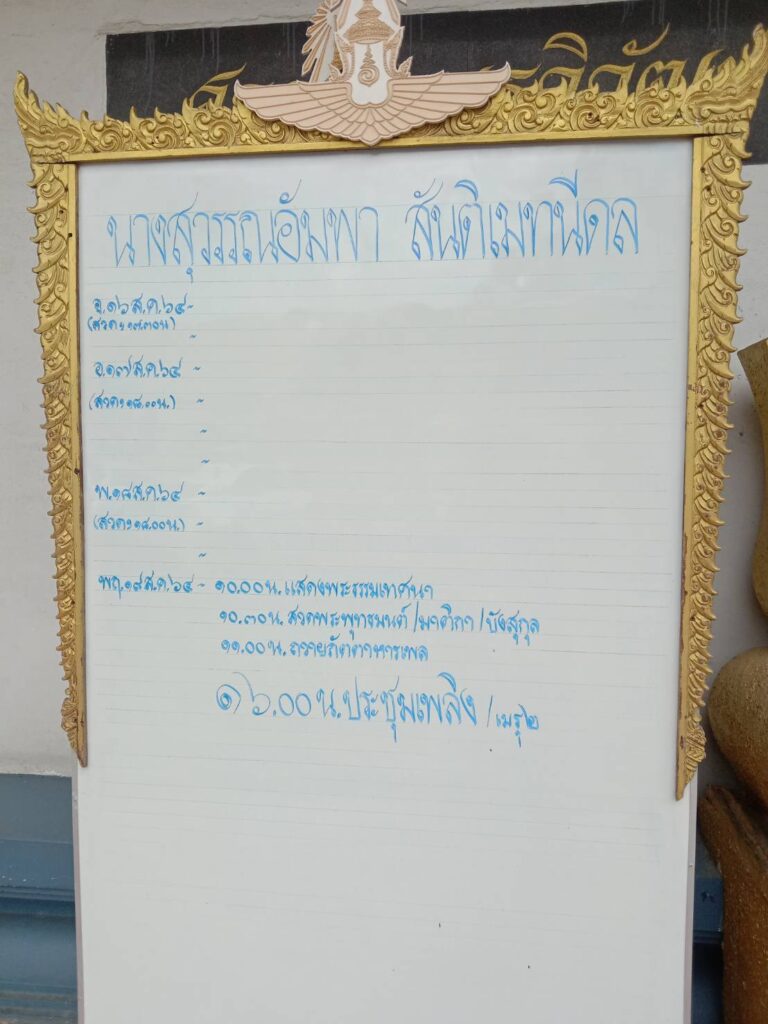 นางสุวรรณอัมพา สันติเมทนีดล
จ.๑๖ ส.ค.๖๔ -
(สวดฯ ๑๗.๓๐น)
-
อ.๑๗ ส.ค.๖๔ -
(สวดฯ ๑๘.๐๐น.) -
-
-
พ.๑๘ ส.ค.๖๔ -
(สวดฯ ๑๘.๐๐น.) -
-
พฤ.๑๙ ส.ค.๖๔ - ๑๐.๐๐น. แสดงพระธรรมเทศนา
๑๐.๓๐น. สวดพระพุทธมนต์ / มาติกา / บังสุกุล
๑๑.๐๐น. ถวายภัตตาหารเพล
๑๖.๐๐น. ประชุมเพลิง / เมรุ ๒